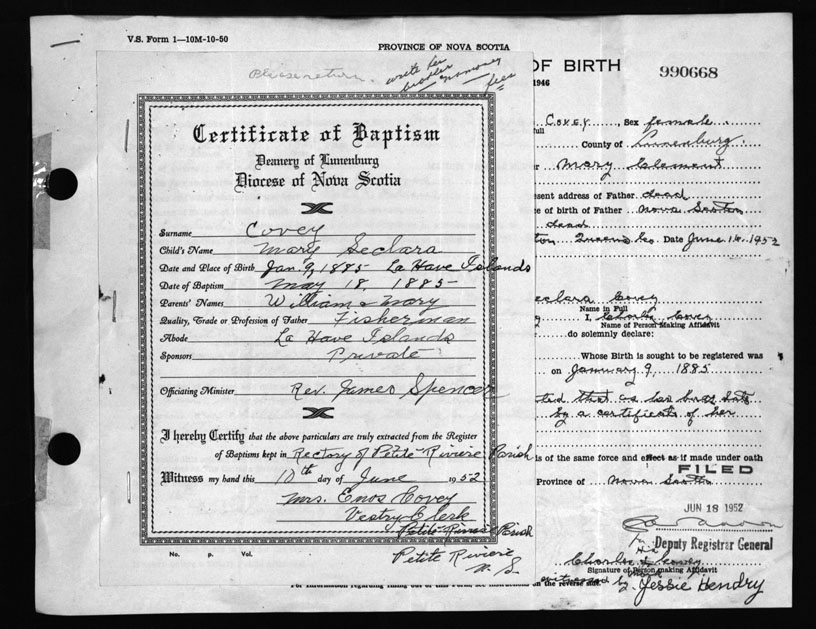 V.S. Form 1—10M-10-50
PROVINCE OF NOVA SCOTIA
Please return.
write her
brother
no money
fees
Certificate of Baptism
Deanery of Lunenburg
Diocese of Nova Scotia
Surname Covey
Child's Name Mary Seclara
Date and Place of Birth Jan. 9, 1885 La Have Islands
Date of Baptism May 18, 1885
Parents' Names William & Mary
Quality, Trade or Profession of Father Fisherman
Abode La Have Islands
Sponsors Private
Officiating Minister Rev. James Spencer
I hereby Certify that the above particulars are truly extracted from the Register
of Baptisms kept in Rectory of Petite Riviere Parish
Witness my hand this 10th day of June 1952
Mrs. Enos Covey
Vestry Clerk
Petite Riviere Parish
No. P. Vol.
Petite Riviere
N. S.
OF BIRTH
990668
1946
Covey, Sex female
full
County of Lunenburg
Mary Clement
esent address of Father dead
ce of birth of Father Nova Scotia
dead
ton, Queens Co. Date June 16, 1952
eclara Covey
Name in Full
I, Charles Covey
Name of Person Making Affidavit
do solemnly declare:
Whose Birth is sought to be registered was
on January 9, 1885
by a certificate of her
is of the same force and effect as if made under oath
FILED
Province of Nova Scotia
JUN 18 1952
Deputy Registrar General
Charles Covey
Signature of Person making Affidavit
witnessed by Jessie Hendry
For information regarding filling out of this Form, see instructions on the reverse side.